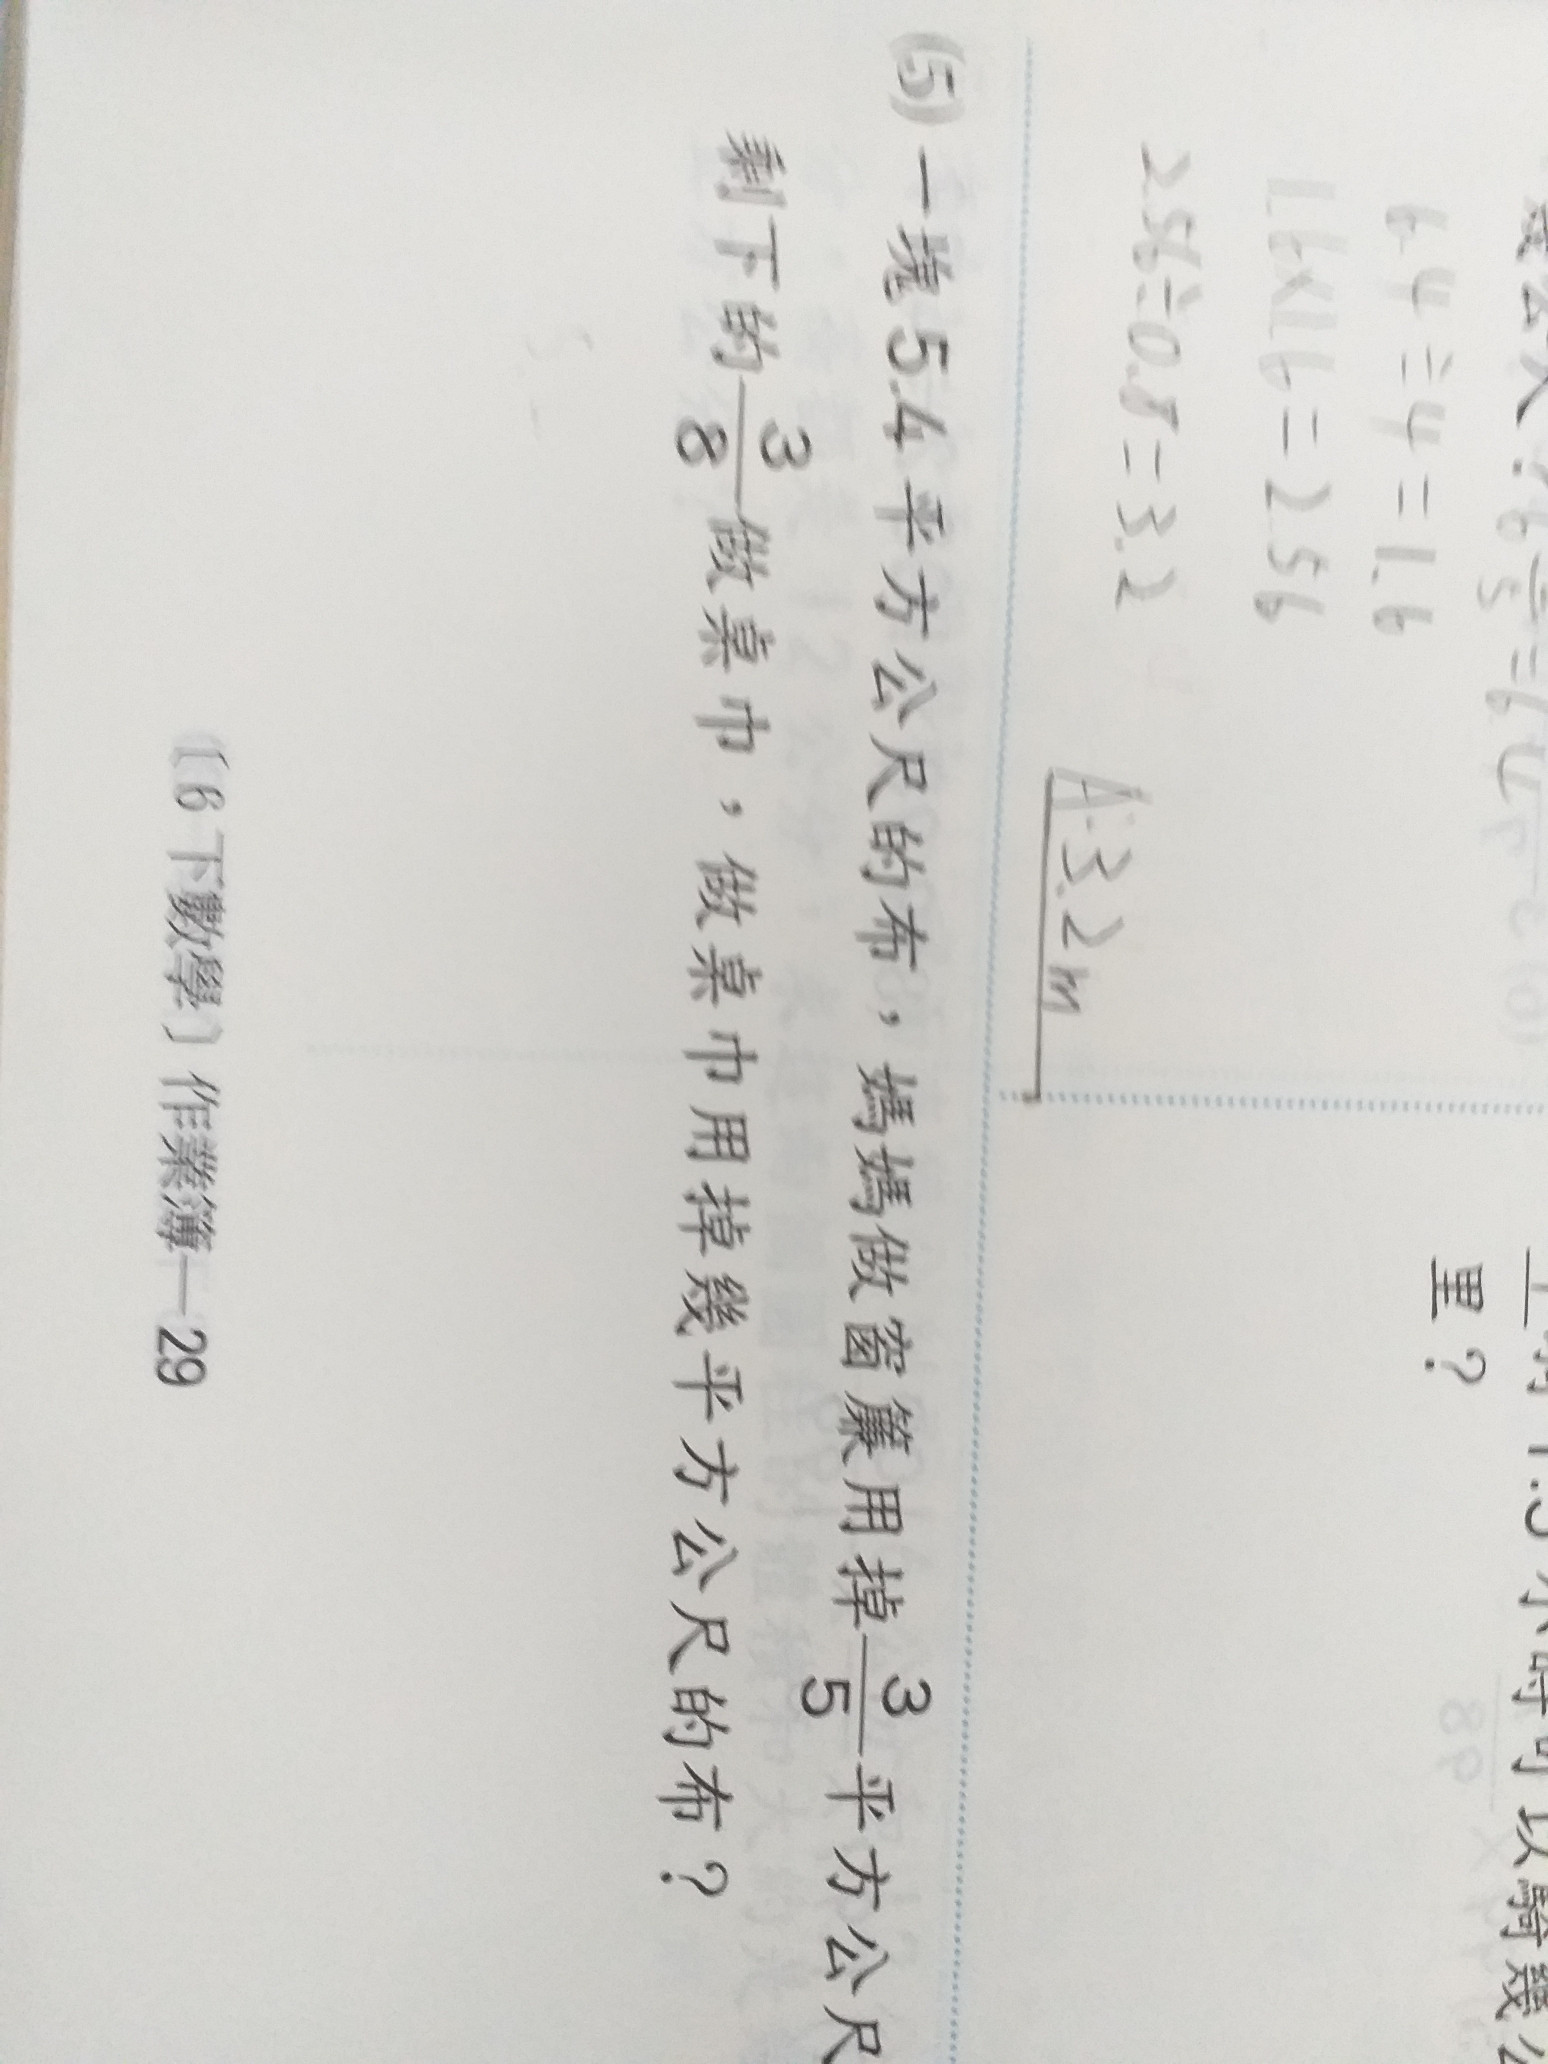 6.4÷4=1.6
1.6×1.6=2.56
2.56÷0.8=3.2
A:3.2m
里？
(5) 一塊5.4平方公尺的布，媽媽做窗簾用掉3/5平方公尺
剩下的3/8做桌巾，做桌巾用掉幾平方公尺的布？
〔6下數學〕作業簿—29